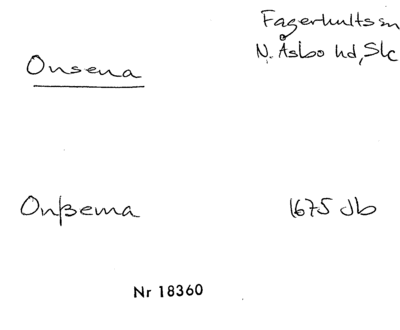 Fagerhults sn
Onsena N. Åsbo hd, Slc
Onßema 1675 Jb
Nr 18360